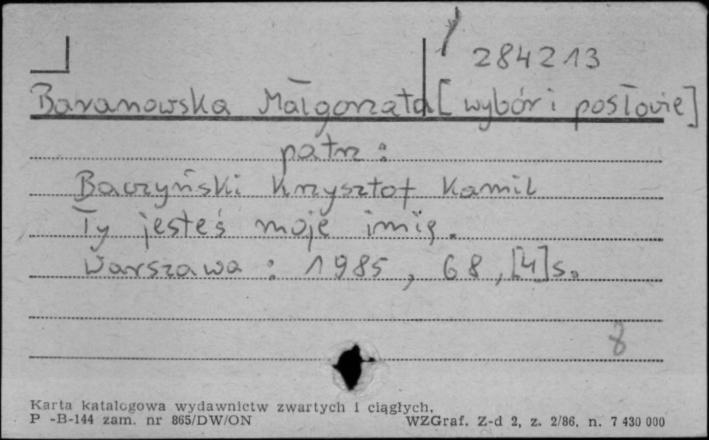 284213
Baranowska Małgorzata [wybór i posłowie]
patrz:
Baczyński Krzysztof Kamil
Ty jesteś moje imię.
Warszawa: 1985, 68, [4]s.
8
Karta katalogowa wydawnictw zwartych i ciągłych.
P -B-144 zam. nr 865/DW/ON WZGraf. Z-d 2, z. 2/86, n. 7 430 000